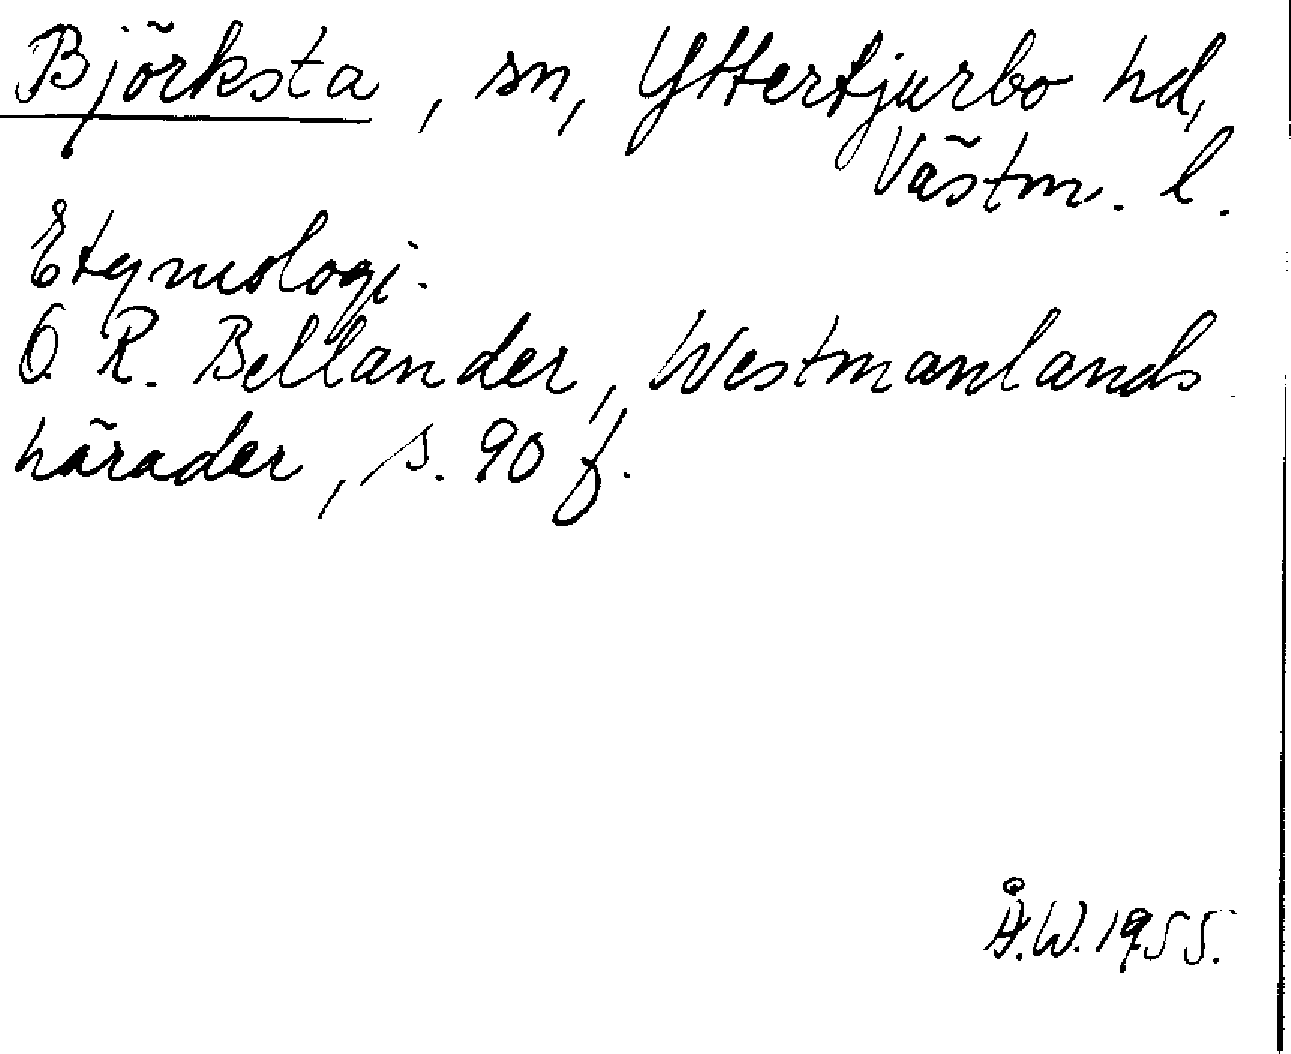 Björksta, sn, Yttertjurbo hd,
Västm. l.
Etymologi.
O. R. Bellander, Westmanlands
härader, s. 90 f.
Å.W. 1955.